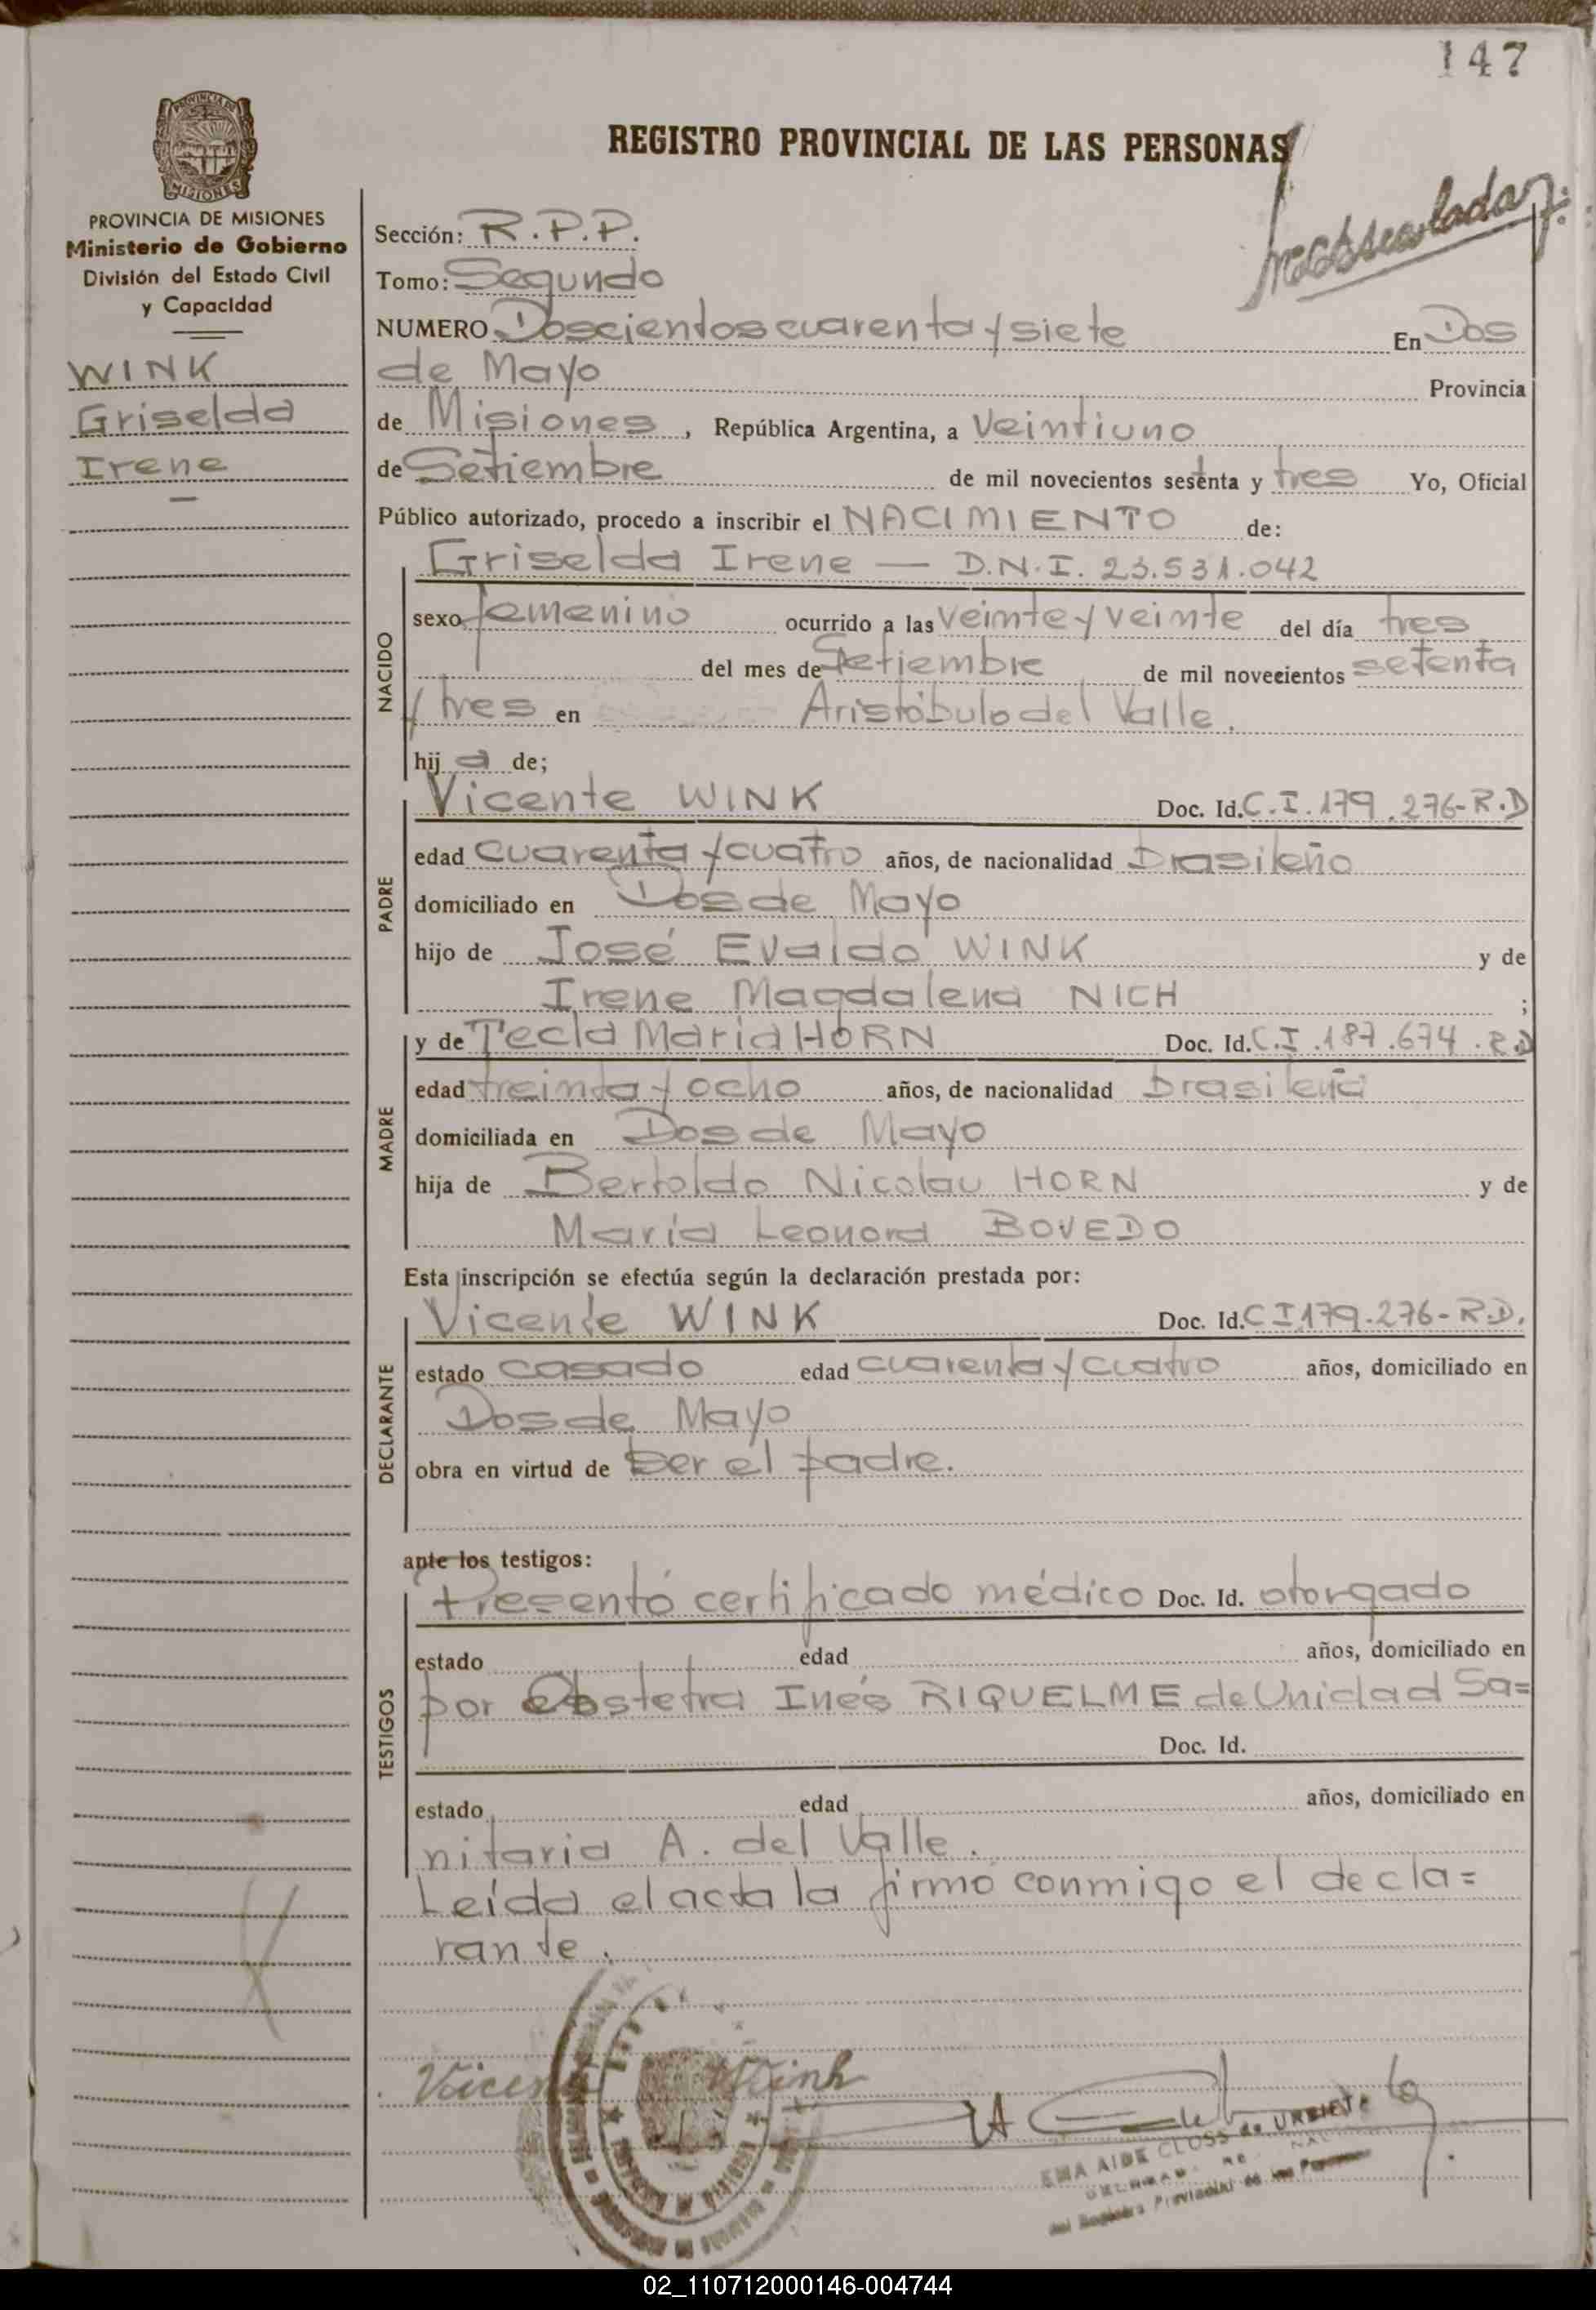 147
REGISTRO PROVINCIAL DE LAS PERSONAS
PROVINCIA DE MISIONES
Ministerio de Gobierno
División del Estado Civil
y Capacidad
WINK
Griselda
Irene
Sección: R.P.P.
Tomo: Segundo
NUMERO Doscientos cuarenta y siete En Dos
de Mayo Provincia
de Misiones, República Argentina, a Veintiuno
de Setiembre de mil novecientos sesenta y tres Yo, Oficial
Público autorizado, procedo a inscribir el NACIMIENTO de:
NACIDO
Griselda Irene — D.N.I. 23.531.042
sexo femenino ocurrido a las veinte y veinte del día tres
del mes de Setiembre de mil novecientos setenta
y tres en Aristóbulo del Valle.
hija de;
PADRE
Vicente WINK Doc. Id. C.I. 179.276-R.D
edad cuarenta y cuatro años, de nacionalidad Brasileño
domiciliado en Dos de Mayo
hijo de José Evaldo WINK y de
Irene Magdalena NICH ;
MADRE
y de Tecla María HORN Doc. Id. C.I. 187.674. R.D
edad treinta y ocho años, de nacionalidad brasileña
domiciliada en Dos de Mayo
hija de Bertoldo Nicolau HORN y de
María Leonora BOVEDO
Esta inscripción se efectúa según la declaración prestada por:
DECLARANTE
Vicente WINK Doc. Id. C I 179.276-R.D.
estado casado edad cuarenta y cuatro años, domiciliado en
Dos de Mayo
obra en virtud de ser el padre.
ante los testigos:
TESTIGOS
Presentó certificado médico Doc. Id. otorgado
estado edad años, domiciliado en
por Obstetra Inés RIQUELME de Unidad Sa=
Doc. Id.
estado edad años, domiciliado en
nitaria A. del Valle.
Leída el acta la firmó conmigo el decla=
rante.
Vicente Wink
EMA AIDE CLOSS de URBIETA
del Registro Provincial de las Personas
02_110712000146-004744